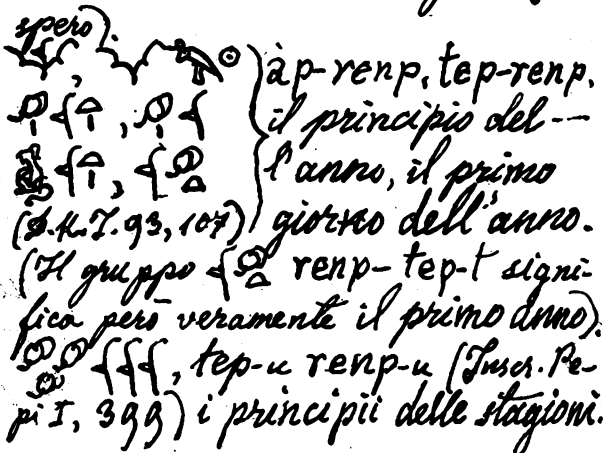 spero).
àp-renp, tep-renp,
il principio del--
l'anno, il primo
(D.K.I. 93, 107) giorno dell'anno.
(Il gruppo renp-tep-t signi-
fica però veramente il primo anno).
, tep-u renp-u (Inscr. Pe-
pi I, 399) i principii delle stagioni.